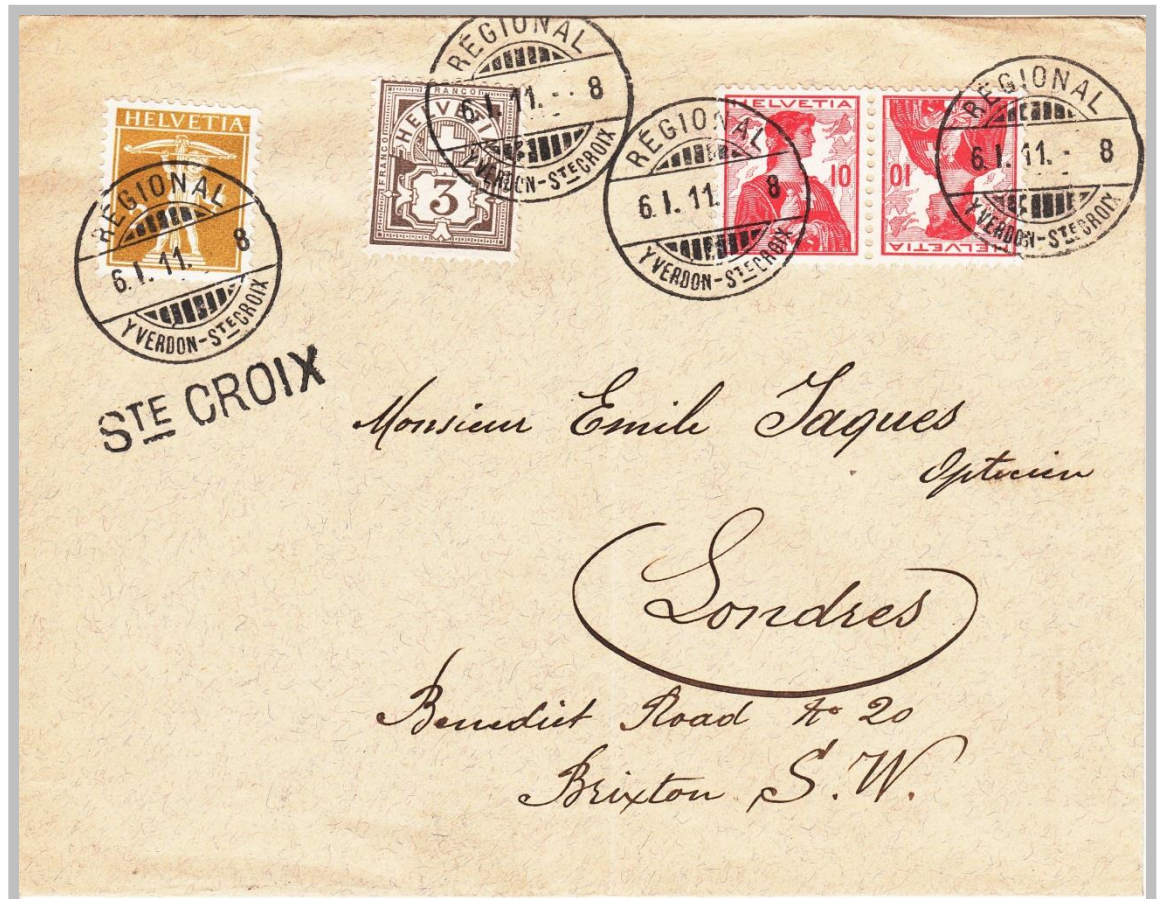 HELVETIA
RÉGIONAL
6.I.11. 8
YVERDON-STE CROIX
FRANCO
HELVETIA
FRANCO
3
RÉGIONAL
6.I.11. - 8
YVERDON-STE CROIX
HELVETIA
10
RÉGIONAL
6.I.11. 8
YVERDON-STE CROIX
HELVETIA
10
RÉGIONAL
6.I.11. - 8
YVERDON-STE CROIX
STE CROIX
Monsieur Emile Jaques
Opticien
Londres
Benedict Road No 20
Brixton S. W.